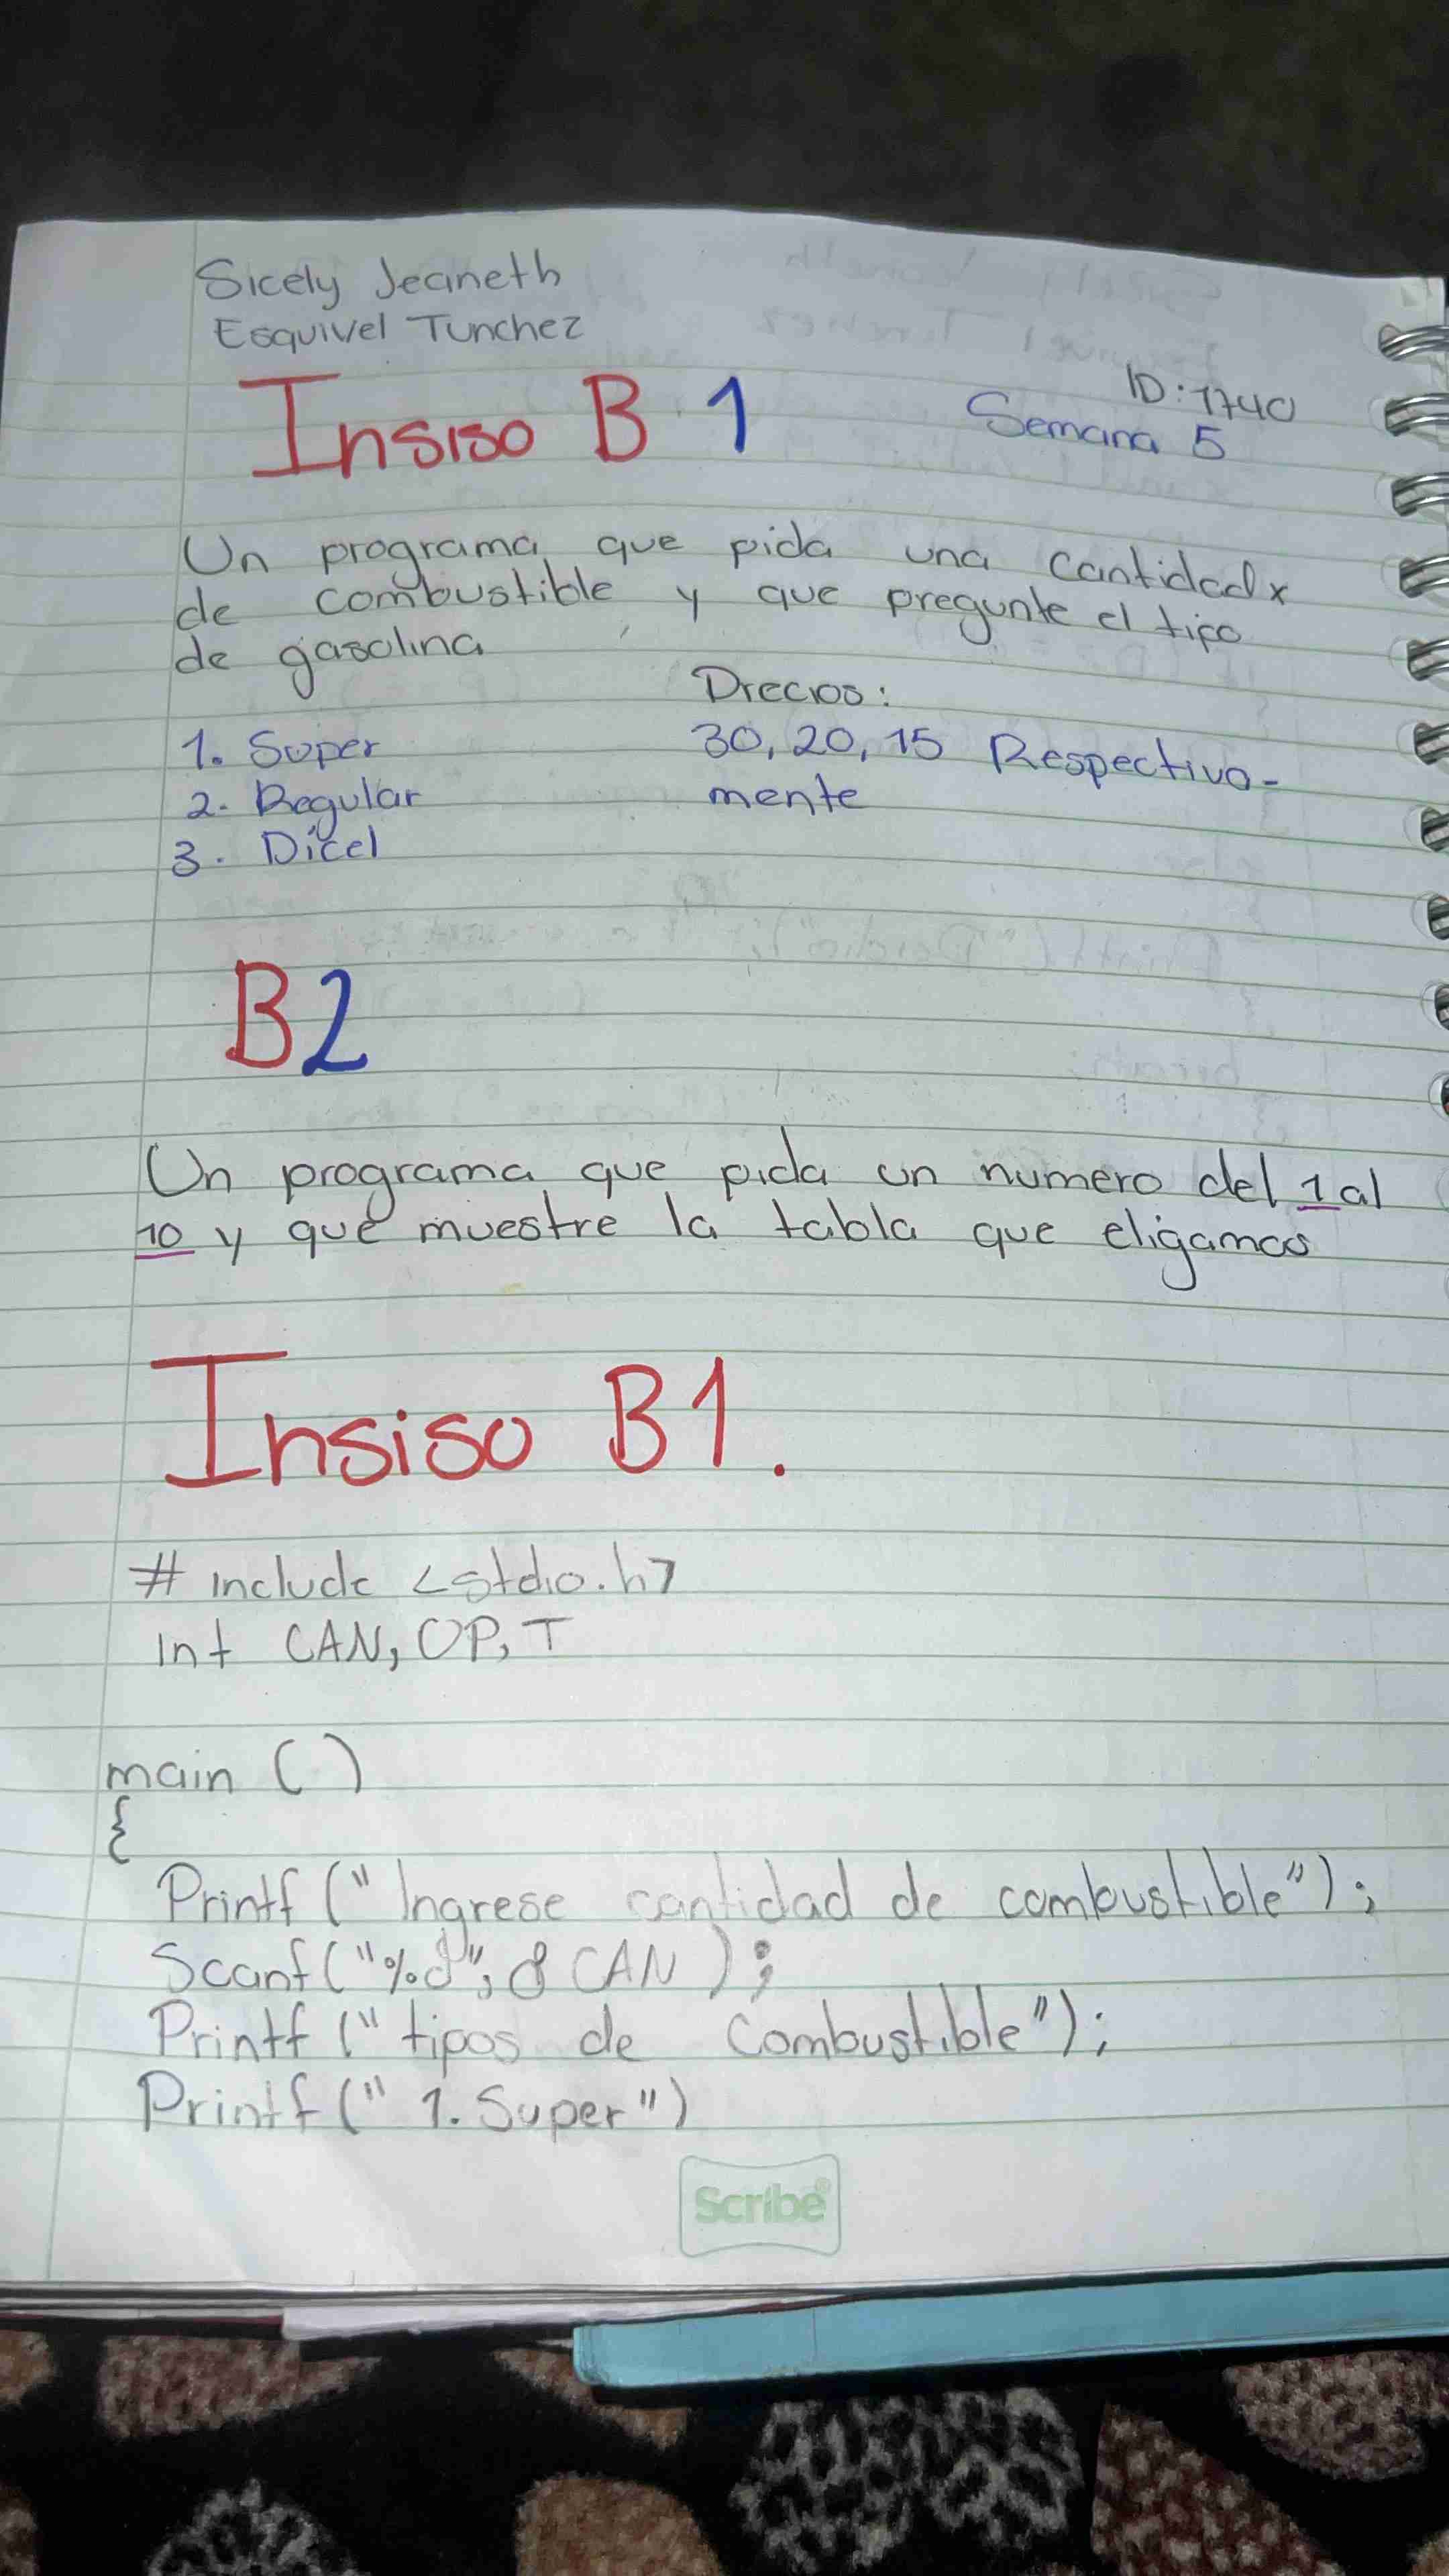 Sicely Jeaneth
Esquivel Tunchez
Insiso B 1
ID: 1740
Semana 5
Un programa que pida una cantidad x
de combustible y que pregunte el tipo
de gasolina
Precios:
1. Super
30, 20, 15 Respectiva-
2. Regular
mente
3. Dicel
B2
Un programa que pida un numero del 1 al
10 y que muestre la tabla que eligamos
Insiso B1.
# include <stdio.h>
int CAN, OP, T
main ( )
{
Printf (" Ingrese cantidad de combustible");
Scanf ("%d", & CAN );
Printf (" tipos de Combustible");
Printf (" 1. Super")
Scribe